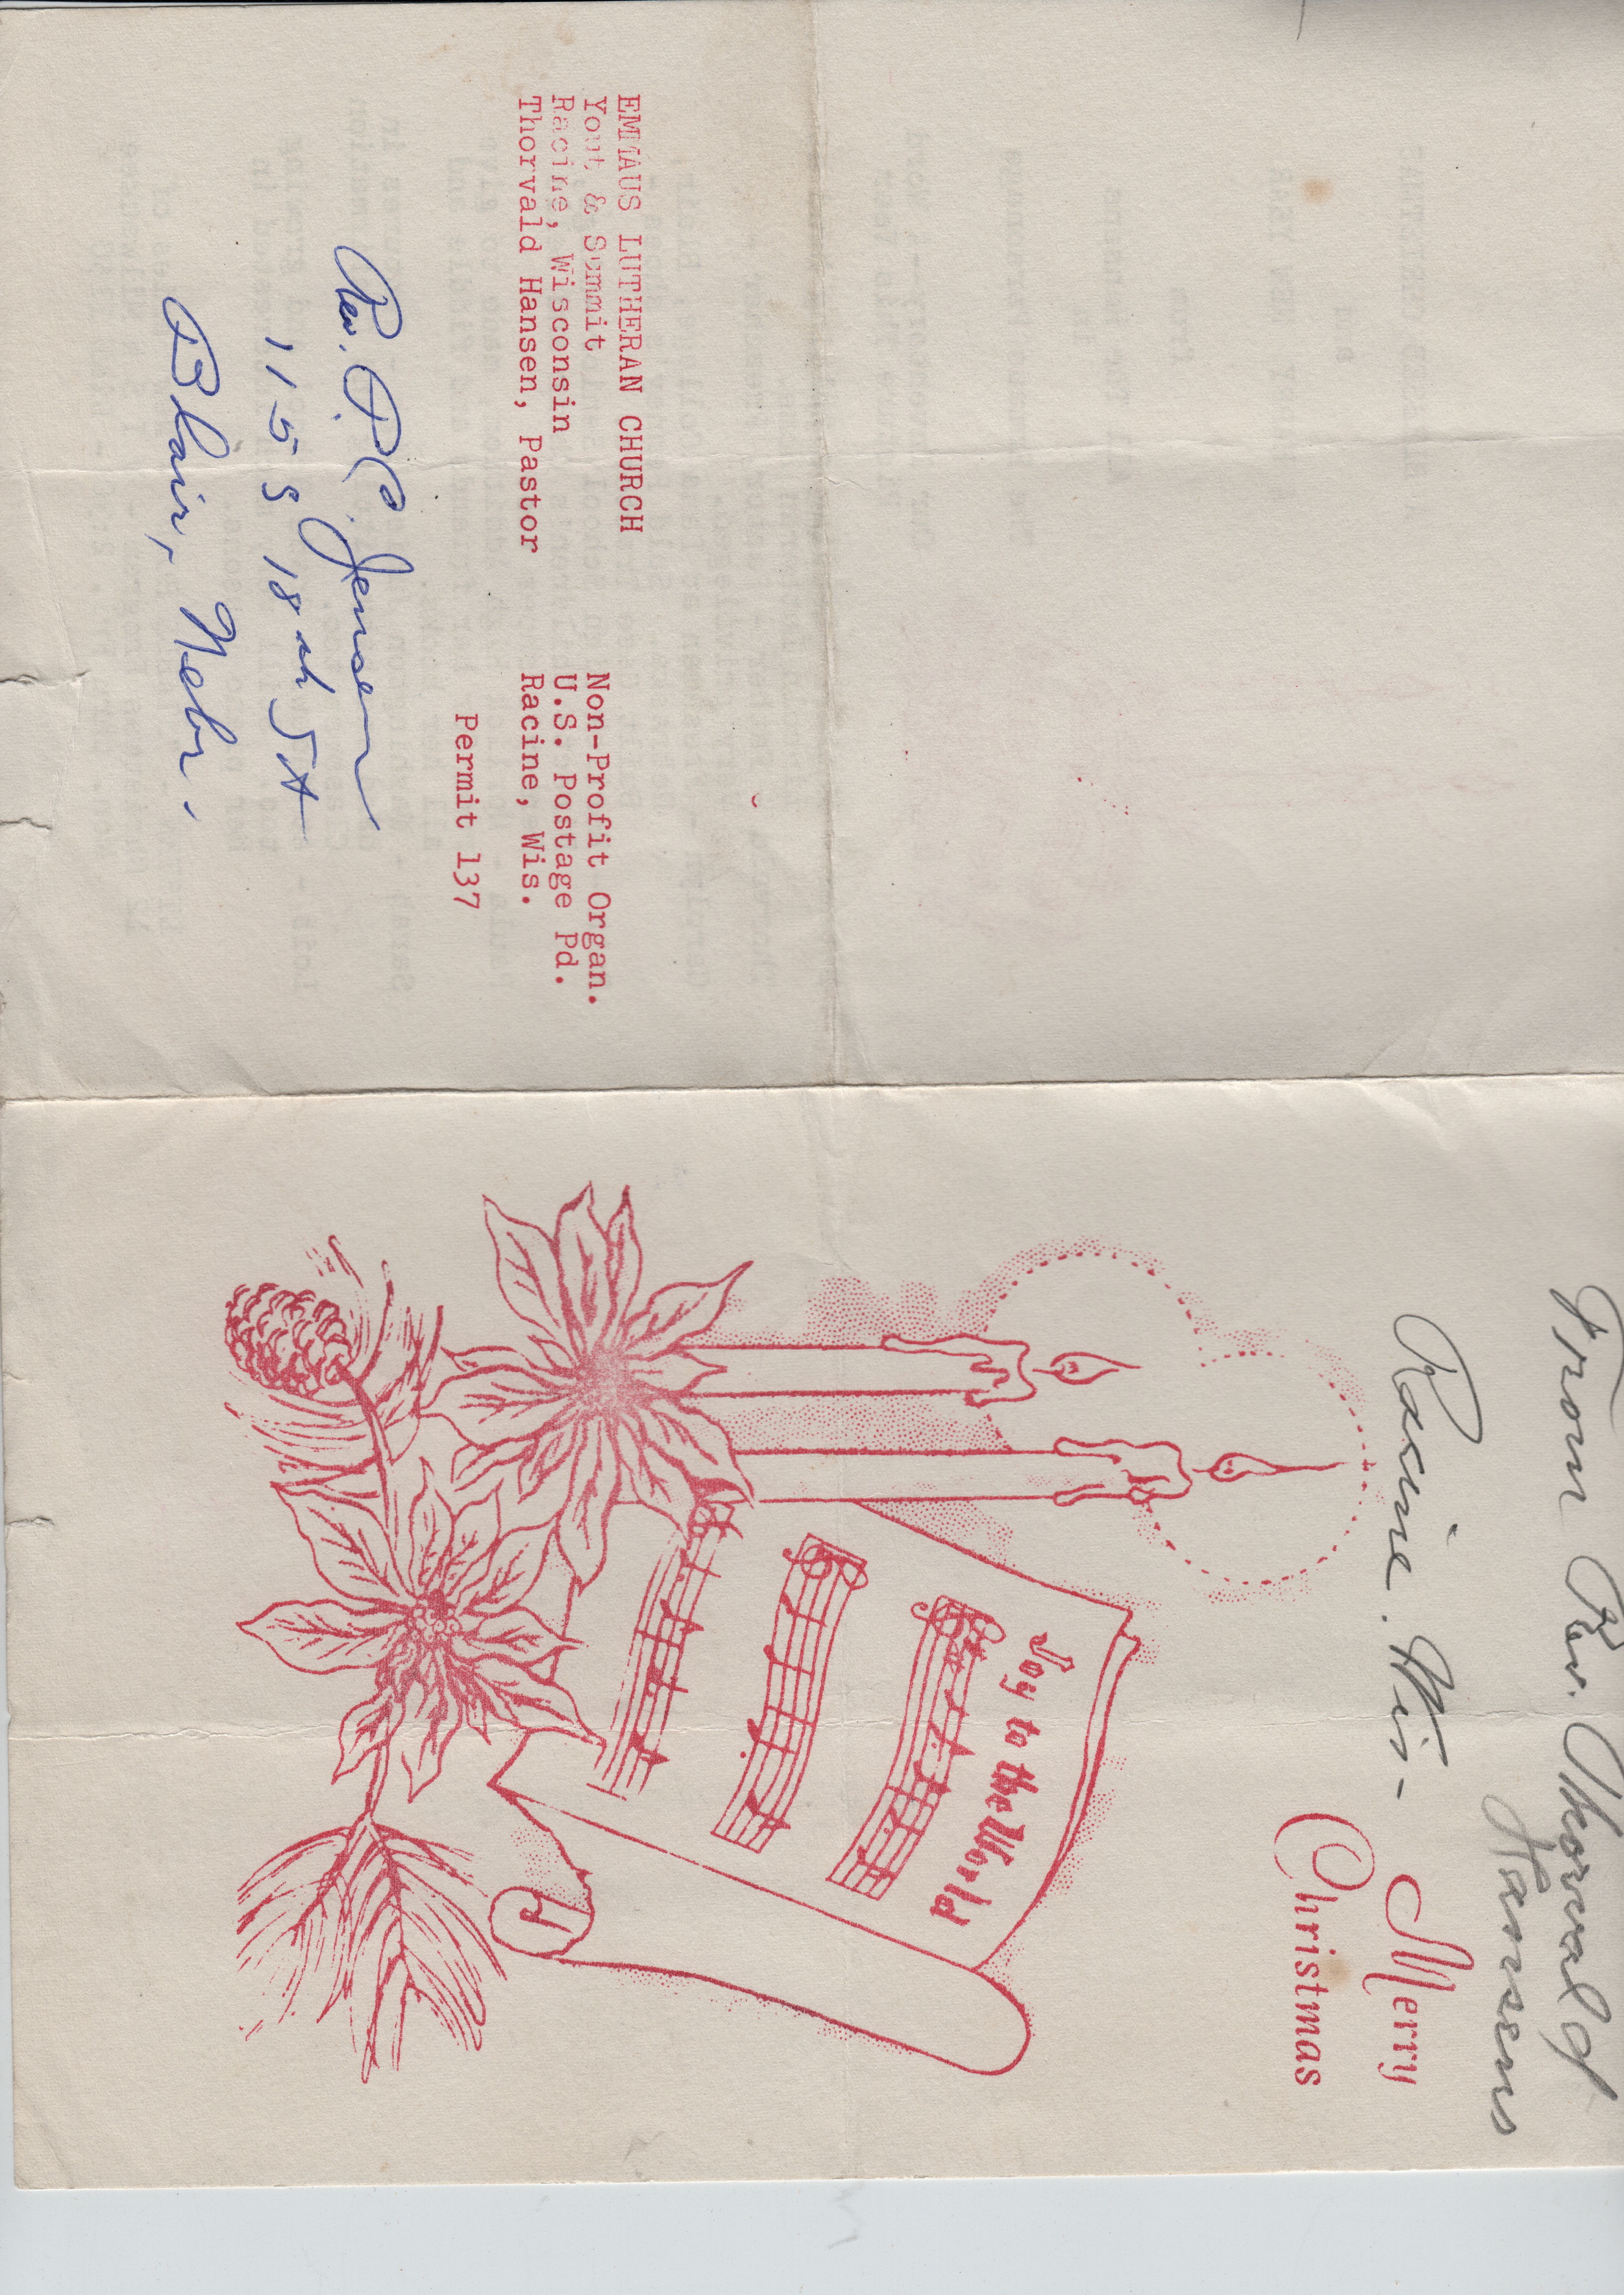 EMMAUS LUTHERAN CHURCH
Yout & Summit
Racine, Wisconsin
Thorvald Hansen, Pastor
Non-Profit Organ.
U.S. Postage Pd.
Racine, Wis.
Permit 137
Rev. P.C. Jensen
115 S 18th St
Blair, Nebr.
From Rev. Thorvald
Hansens
Racine. Wis-
Merry
Christmas
Joy to the World